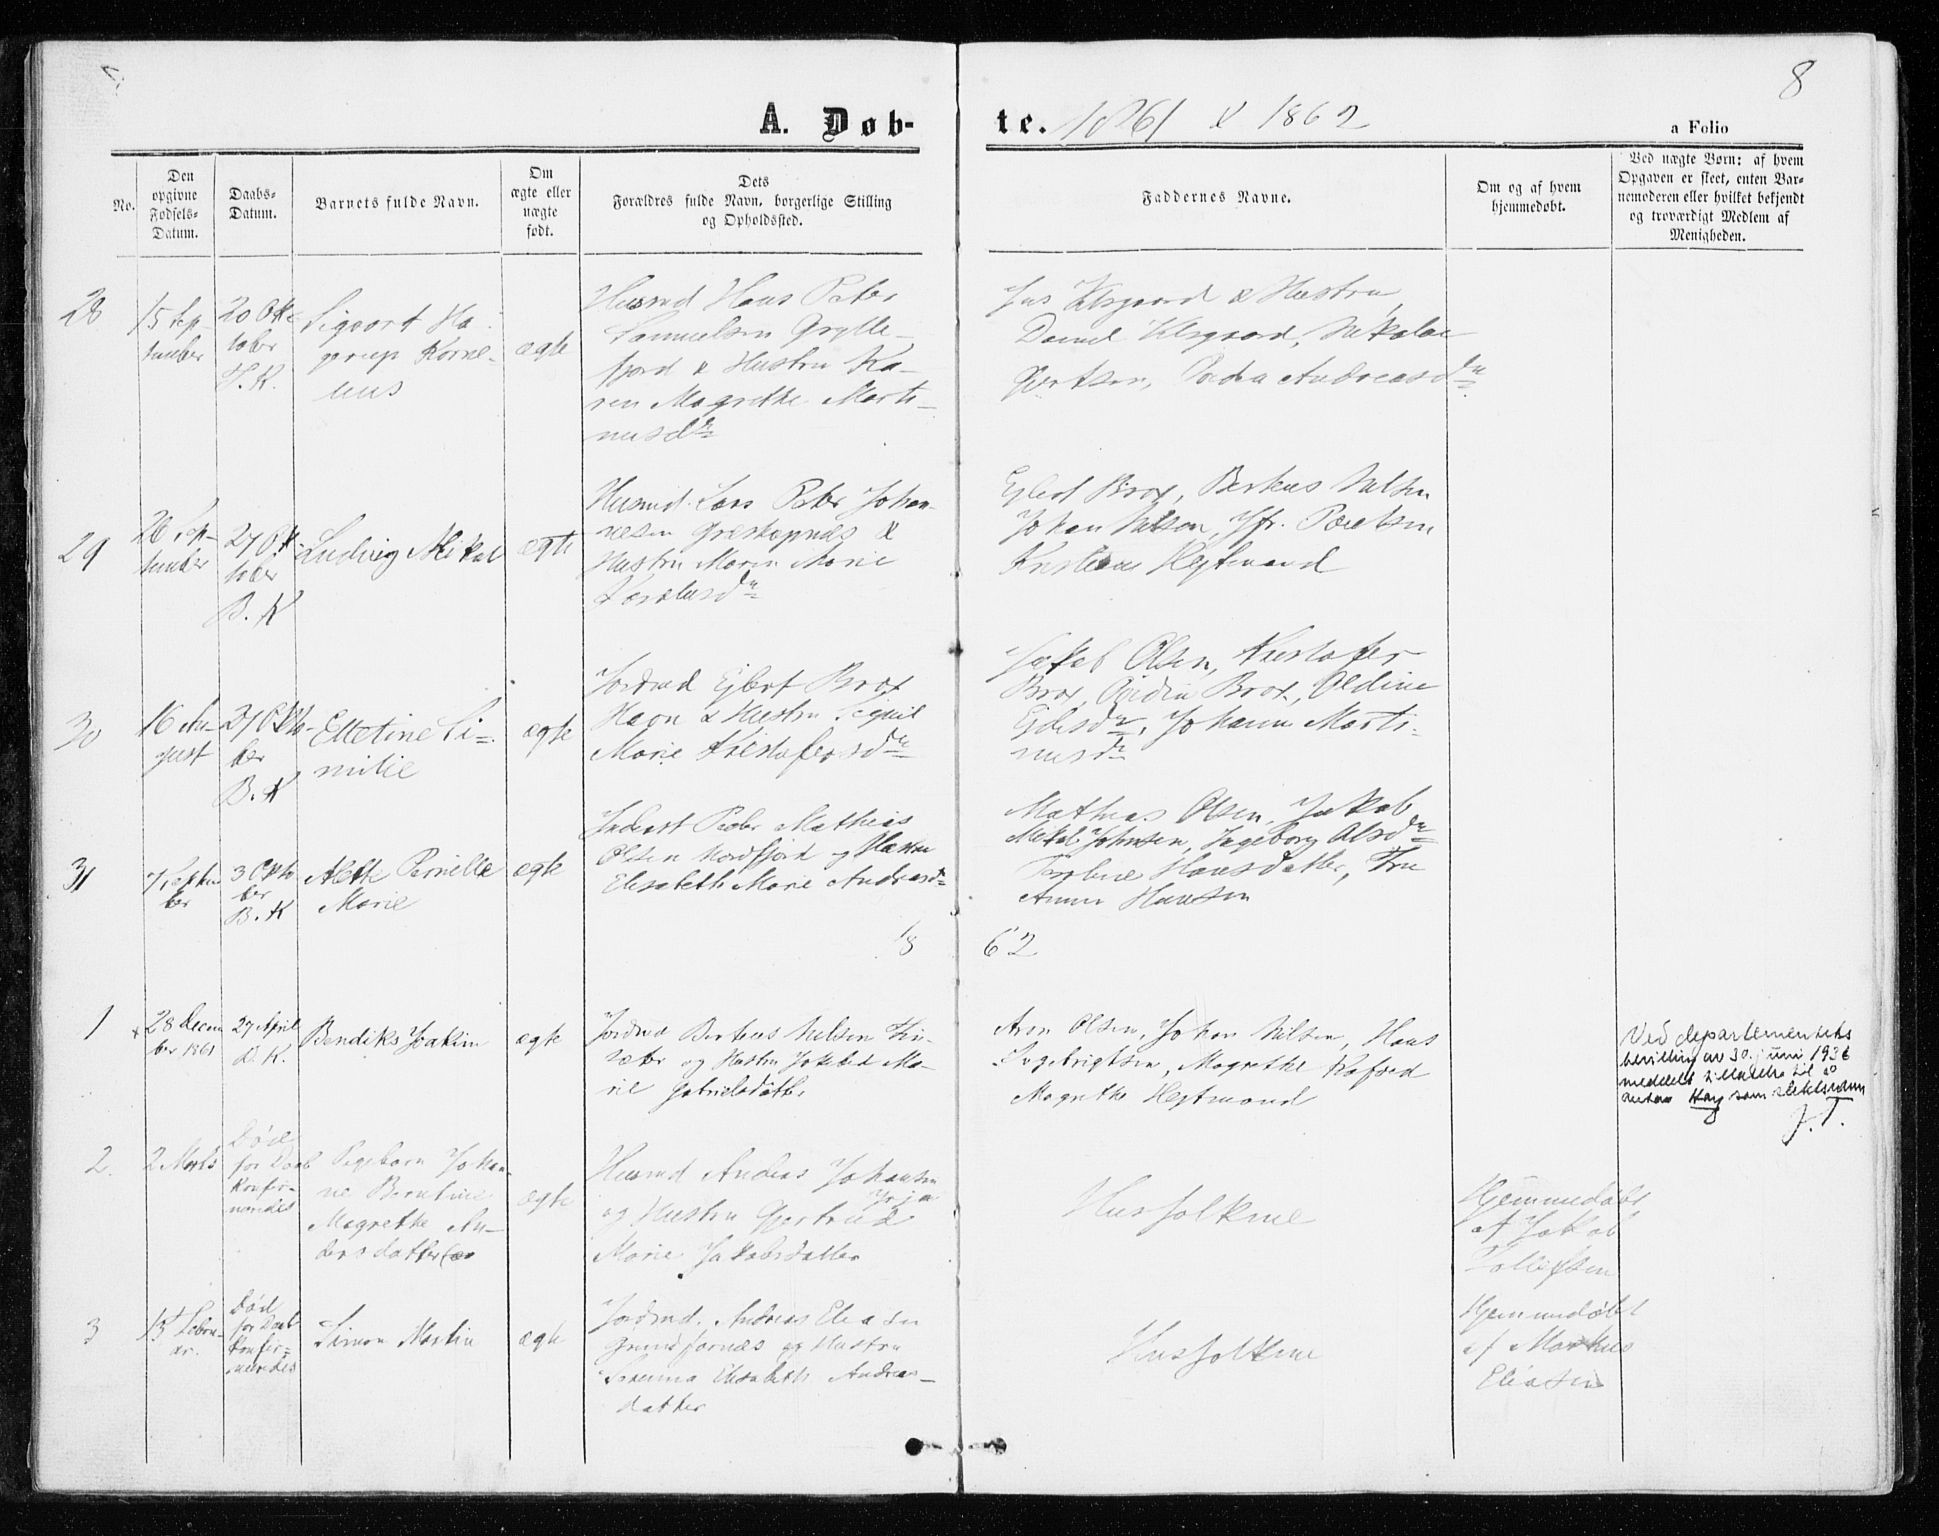 8
A. Døb-
te. 1861 & 1862
a Folio
No.
Den
opgivne
Fødsels-
Datum.
Daabs-
Datum.
Barnets fulde Navn.
Om
ægte eller
uægte
født.
Dets
Forældres fulde Navn, borgerlige Stilling
og Opholdssted.
Faddernes Navne.
Om og af hvem
hjemmedøbt.
Ved uægte Børn: af hvem
Opgaven er skeet, enten Bar-
nemoderen eller hvilket bekjendt
og troværdigt Medlem af
Menigheden.
28
15 Sep-
tember
20 Okt
tober
T. K.
Sigvart Ha
gerup Korne-
lius
ægte
Husmd Hans Peter
Samuelsen Grylle-
fjord & Hustru Ka-
ren Magrethe Marti-
nusdtr
Klysgaard & Hustru,
Daniel Klysgaard, Nikolai
Andreasdtr
29
26 Sep-
tember
27 Ok-
tober
B. K
Ludvig Mikal
ægte
Husmd. Lars Peter Johan-
nesen Græskopnæs &
Hustru Maren Marie
Ejlert Brox, Berteus Nilsen
Johan Nilsen, Jfr.
Hegtmand
30
16 Au-
gust
27 Okto-
ber
B. K
Elletine Si-
milie
ægte
Jordmd Ejlert Brox
Havn & Hustru
Marie Kristofersdtr
Jakob Olsen, Kristofer
Brox, Brox, Oldine
Ejlersdtr, Johanna Marti-
nusdtr
31
7 Septem
ber
3 Okto
ber
B. K
Alette Pernille
Marie
ægte
Inderst Peder Mathias
Olsen Nordfjord og Hustru
Elisabeth Marie Andreasdtr
Mathias Olsen, Jakob
Mikal Johnsen, Ingeborg Olsdtr
Hansdatter, Fru
Anna Hansen
18
62
1
28 Decem
ber 1861
27 April
D. K.
Bendiks Joakim
ægte
Jordmd Berteus Nilsen Fin-
sæter og Hustru Jokbet Ma-
rie Gabrielsdatter
Aron Olsen, Johan Nilsen, Hans
Ingebrigtsen, Magrethe Kofoed
Magrethe Hegtmand
Ved departementets
bevilling av 30. juni 1936
meddelt tilladelse til å
Kay som slektsnavn
J. T.
2.
2 Marts
Død
før Daab
konfir-
meredes
Pigebarn Johan-
ne Berntine
Magrethe An-
dersdatter
ægte
Husmd Anders Johansen
og Hustru Gjertrud
Marie Jakobsdatter
Husfolkene
Hjemmedøbt
af Jakob
Tollefsen
3
13 Febru-
ar.
Død
før Daab
konfir-
meredes
Simon Martin
ægte
Jordmd. Andreas Eliasen
Grundfarnæs og Hustru
Elisabeth Andreas-
datter
Husfolkene
Hjemmedøbt
af Markus
Eliasen